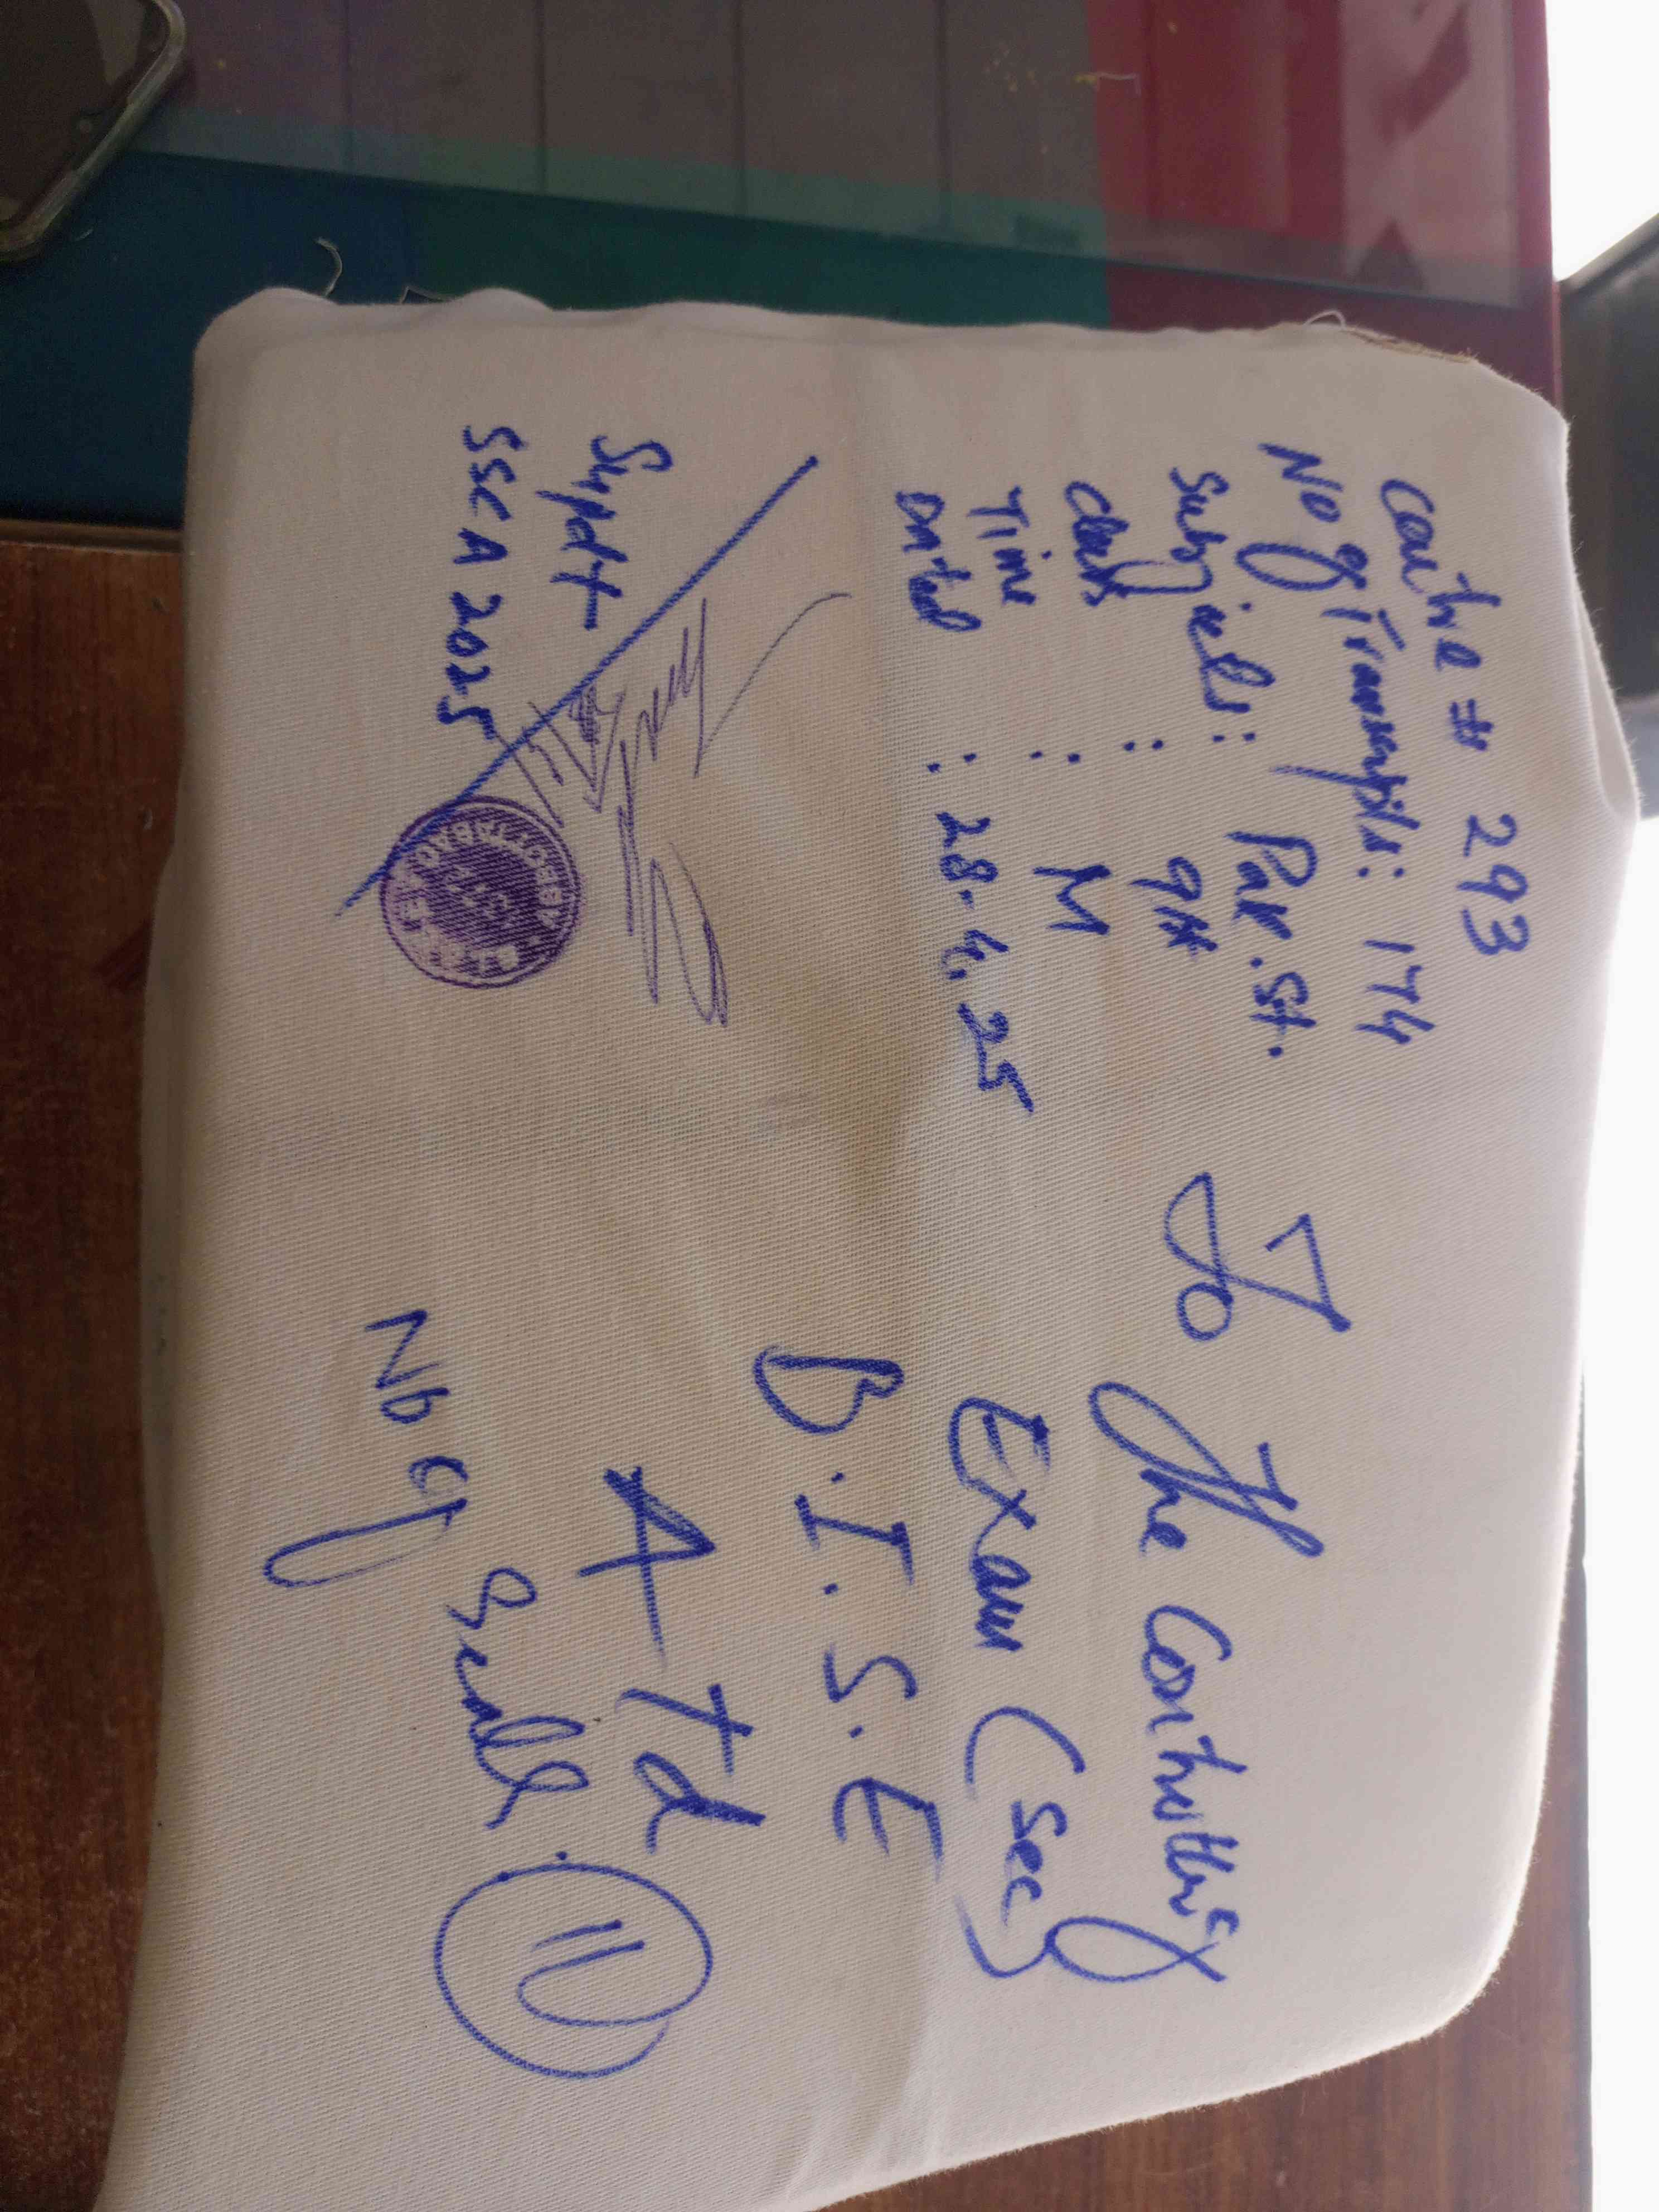 Centre # 293
No of Transcripts: 174
Subjects: Pak.St.
Class : 9th
Time : M
Dated : 28.4.25
Supdt
SSC A 2025
ABBOTTABAD
To
The Controller
Exam (Sec)
B.I.S.E
A Td
No of Seals.
11